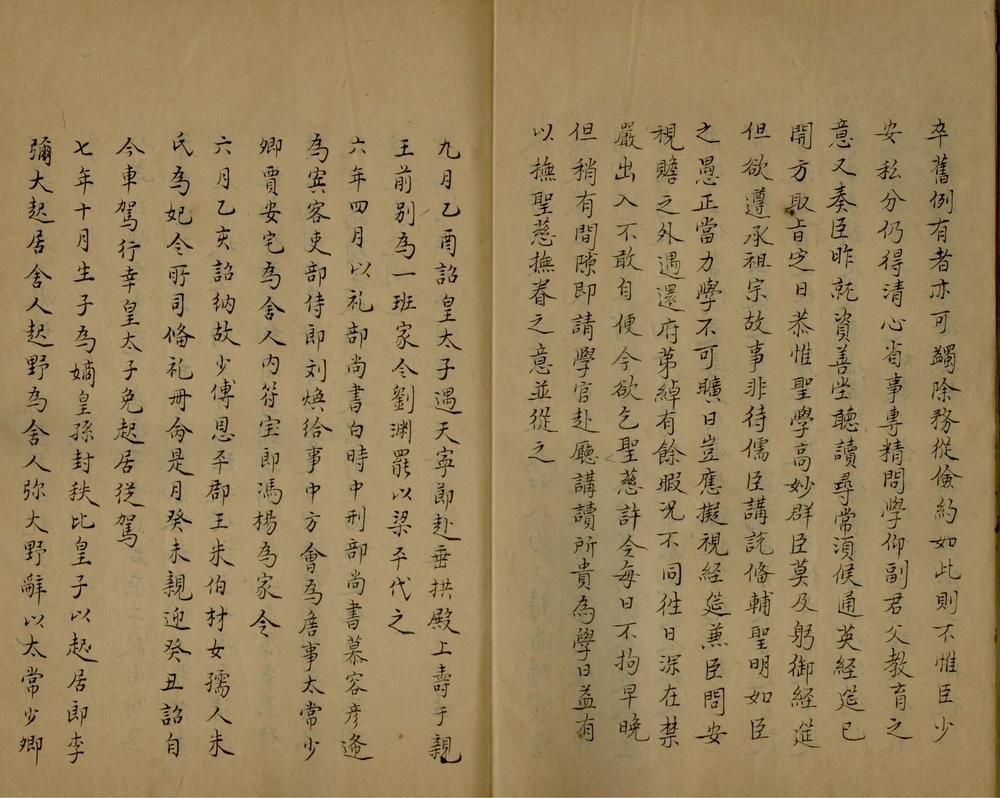 卒舊例有者亦可蠲除務從儉約如此則不惟臣少
安私分仍得清心省事專精問學仰副君父教育之
意又奏臣昨就資善堂聽讀尋常須候通英經筵已
開方取旨定日恭惟聖學高妙群臣莫及躬御經筵
但欲遵承祖宗故事非待儒臣講說俻輔聖明如臣
之愚正當力學不可曠日豈應擬視經筵兼臣問安
視膳之外遇還府苐綽有餘暇况不同徃日深在禁
嚴出入不敢自便今欲乞聖慈許令每日不拘早晚
但稍有間隙即請學官赴廳講讀所貴為學日益有
以撫聖慈撫眷之意並從之
九月乙酉詔皇太子遇天寧節赴垂拱殿上壽于親
王前别為一班家令劉渊罷以梁平代之
六年四月以礼部尚書白時中刑部尚書慕容彦逄
為賔客吏部侍郎刘煥給事中方會為詹事太常少
卿賈安宅為舍人内符宝郎馮楊為家令
六月乙亥詔納故少傅恩平郡王朱伯材女孺人朱
氏為妃令所司俻礼册命是月癸未親迎癸丑詔自
今車駕行幸皇太子免起居從駕
七年十月生子為嫡皇孫封秩比皇子以起居郎李
彌大起居舍人起野為舍人弥大野辭以太常少卿